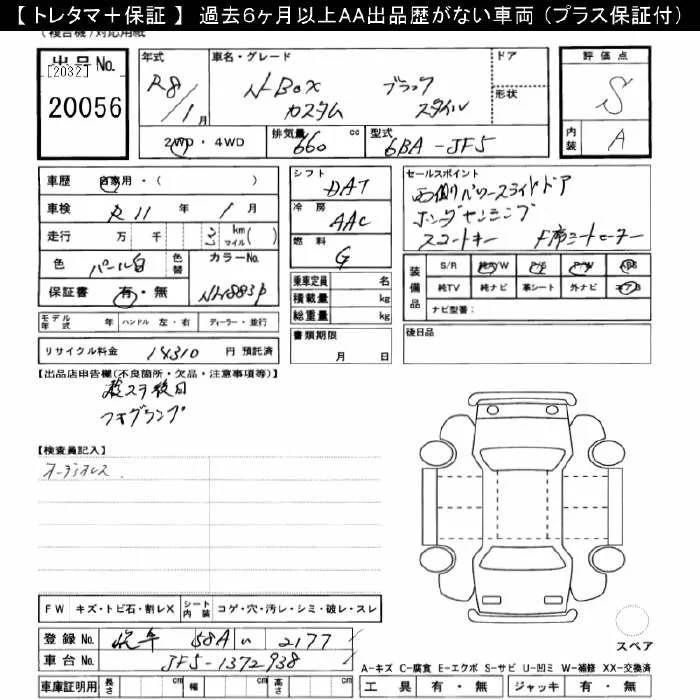 【 トレタマ＋保証 】 過去6ヶ月以上AA出品歴がない車両（プラス保証付）
出品No.
[2032]
20056
年式
R8/1月
車名・グレード
N-Box ブラック
カスタム スタイル
ドア
形状
評価点
S
内装 A
2WD・4WD
排気量 660 cc
型式 6BA-JF5
車歴 自家用・（ ）
車検 R11年 1月
走行 万 千 3 km マイル( )
色 パール白 色替
カラーNo. NH883P
保証書 有・無
モデル年式 年 ハンドル 左・右 ディーラー・並行
リサイクル料金 14310 円 預託済
シフト DAT
冷房 AAC
燃料 G
乗車定員 名
積載量 kg
総重量 kg
書類期限
月 日
セールスポイント
両側パワースライドドア
ホンダセンシング
スマートキー F席シートヒーター
装備品
S/R 純A/W P/S P/W ABS
純TV 純ナビ 革シート 外ナビ エアB
ナビ型番:
後日品
【出品店申告欄(不良箇所・欠品・注意事項等)】
フォグランプ
【検査員記入】
オーディオレス
FW キズ・トビ石・割レX シート内装 コゲ・穴・汚レ・シミ・破レ・スレ
登録No. 58A い 2177
車台No. JF5-1372938
車庫証明用 長さ cm 幅 cm 高さ cm
スペア
A-キズ C-腐食 E-エクボ S-サビ U-凹ミ W-補修 XX-交換済
工具 有・無 ジャッキ 有・無